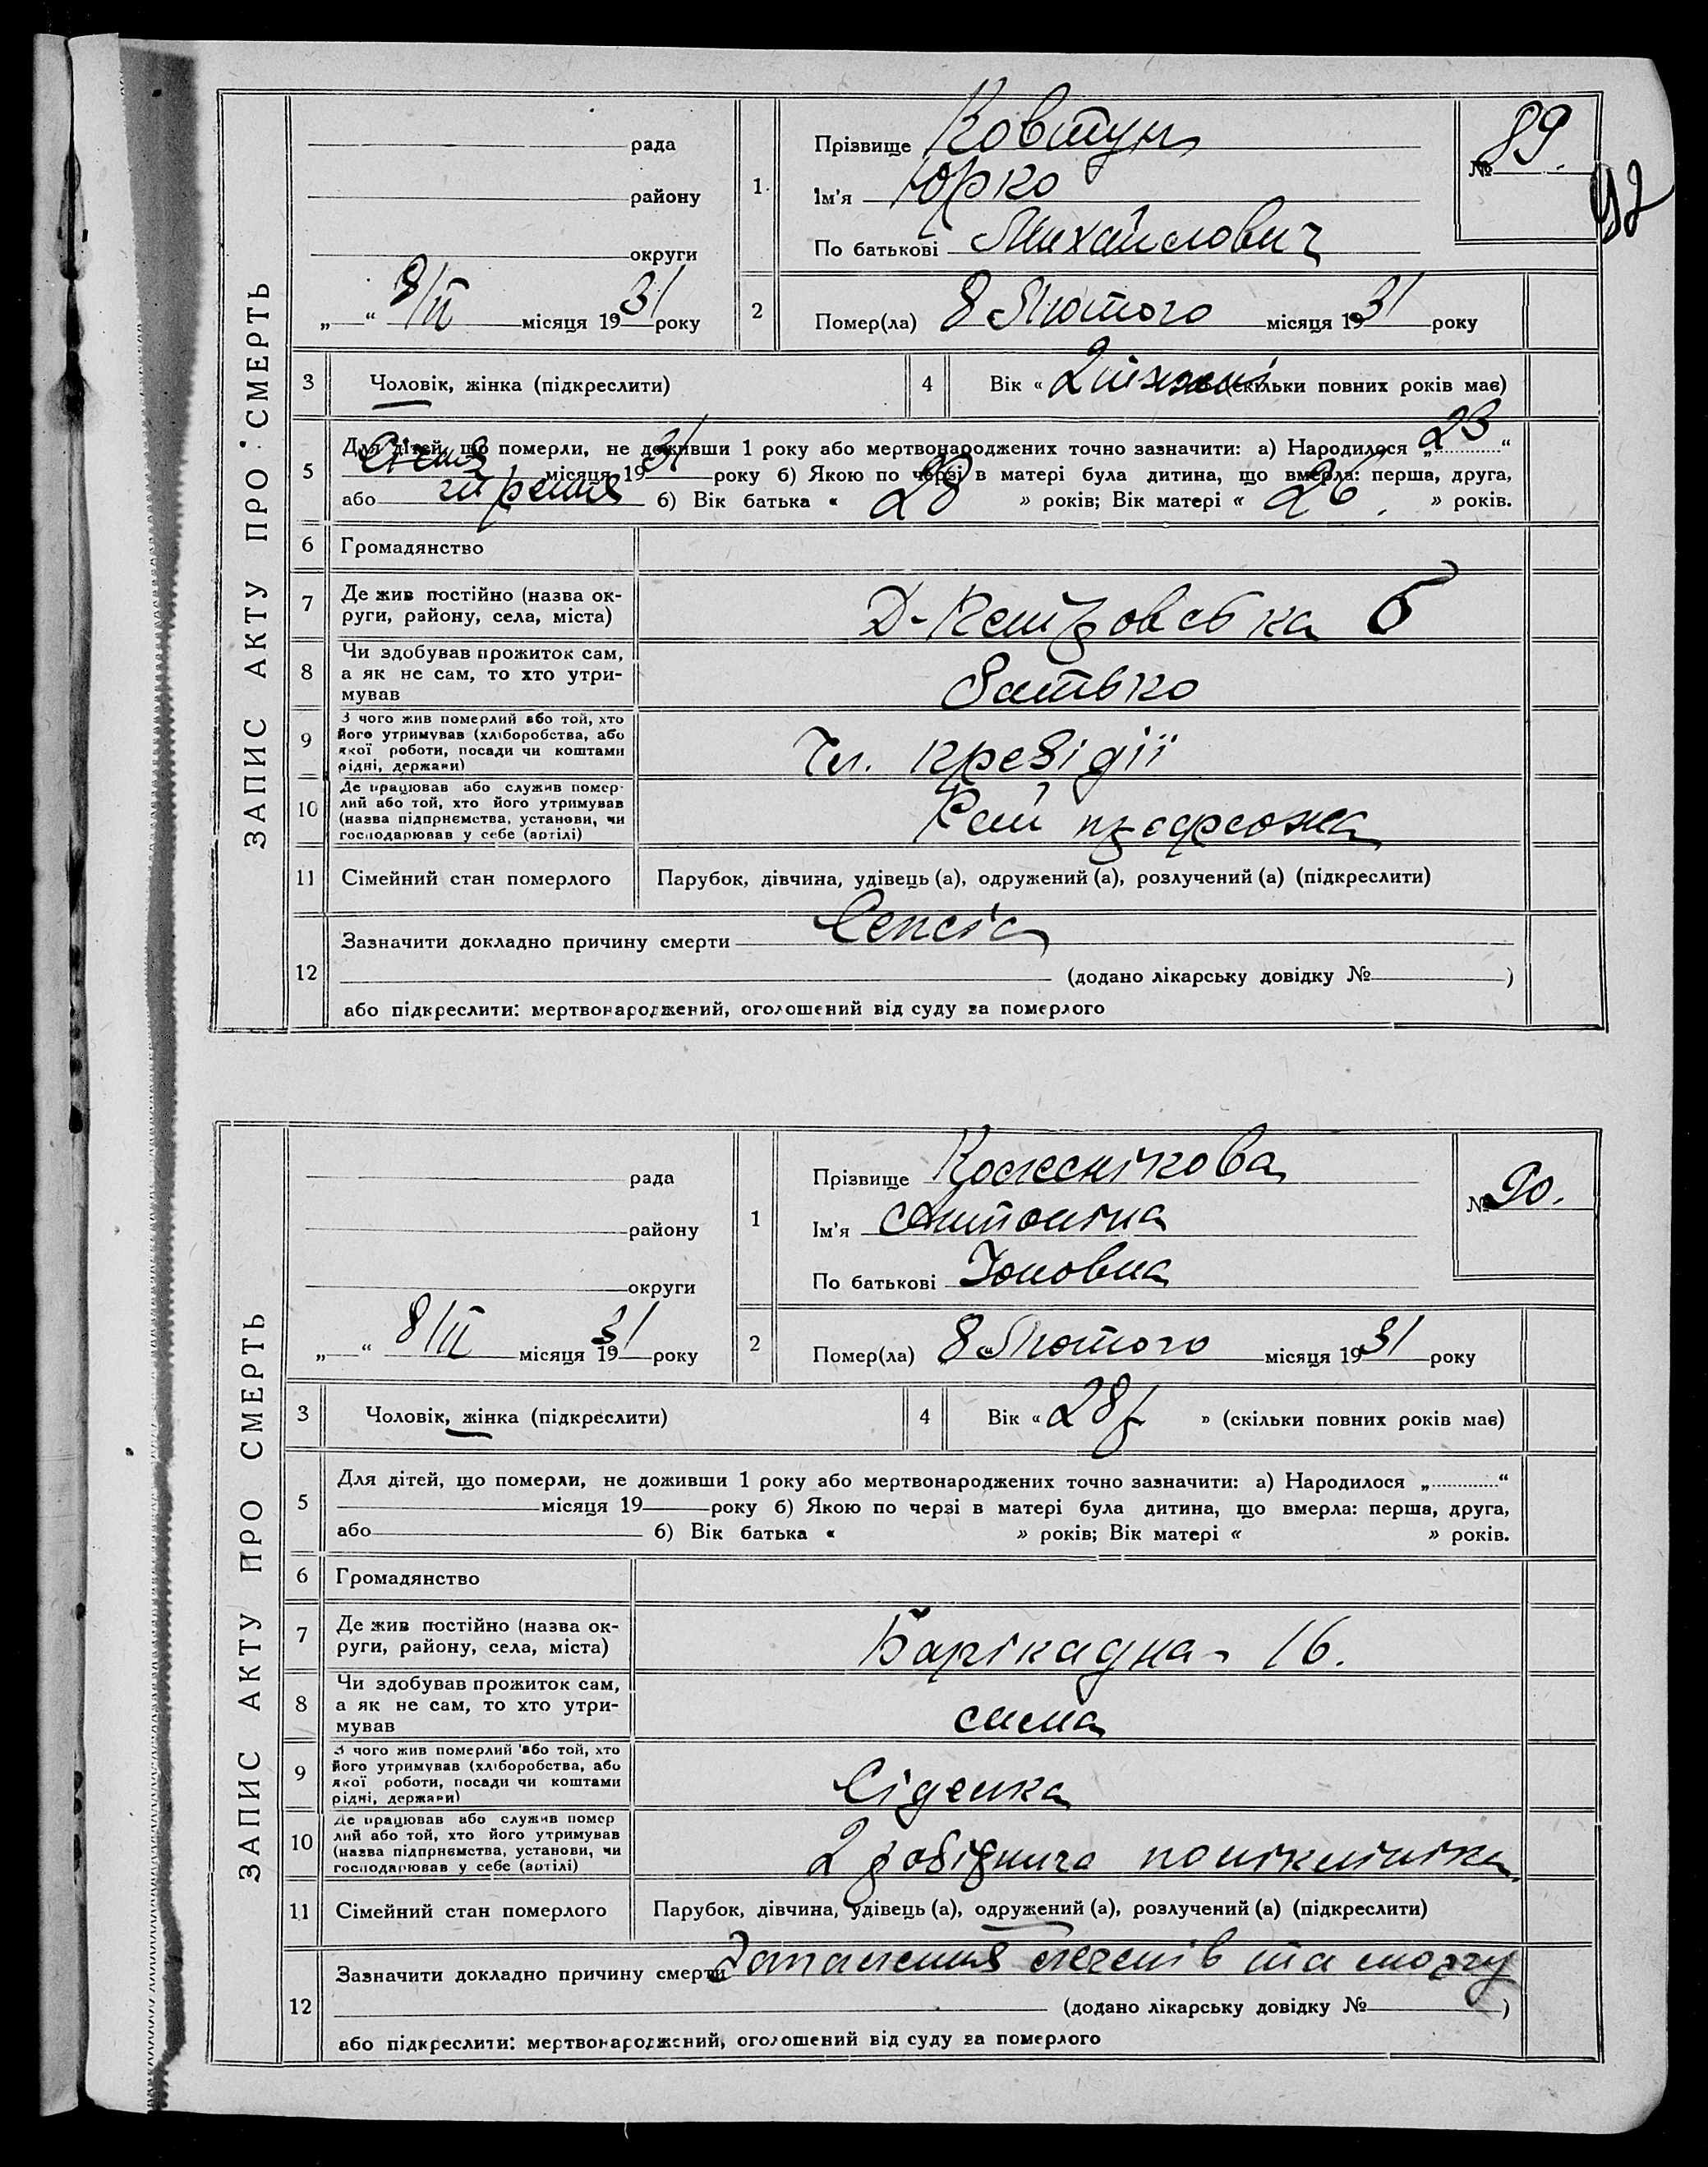 ЗАПИС АКТУ ПРО СМЕРТЬ
рада
району
округи
„ “ 8/II місяця 1931 року
1. Прізвище Ковтун
Ім'я Юрко
По батькові Михайлович
№ 89.
92
2 Помер(ла) 8 Лютого місяця 1931 року
3 Чоловік, жінка (підкреслити)
4 Вік « 2 тижні (скільки повних років має)
5 Для дітей, що померли, не доживши 1 року або мертвонароджених точно зазначити: а) Народилося „23“
Січня місяця 1931 року б) Якою по черзі в матері була дитина, що вмерла: перша, друга,
або третя б) Вік батька « 28 » років; Вік матері « 26. » років.
6 Громадянство
7 Де жив постійно (назва ок-
руги, району, села, міста)
Д-Петровська 5
8 Чи здобував прожиток сам,
а як не сам, то хто утри-
мував
Батько
9 З чого жив померлий або той, хто
його утримував (хліборобства, або
якої роботи, посади чи коштами
рідні, держави)
Чл. президії
10 Де працював або служив помер-
лий або той, хто його утримував
(назва підприємства, установи, чи
господарював у себе (артілі)
11 Сімейний стан померлого Парубок, дівчина, удівець (а), одружений (а), розлучений (а) (підкреслити)
12 Зазначити докладно причину смерти Сепсіс
(додано лікарську довідку № )
або підкреслити: мертвонароджений, оголошений від суду за померлого
ЗАПИС АКТУ ПРО СМЕРТЬ
рада
району
округи
„ “ 8/II місяця 1931 року
1 Прізвище Кожевнікова
Ім'я Антоніна
По батькові Іоновна
№ 90.
2 Помер(ла) 8 Лютого місяця 1931 року
3 Чоловік, жінка (підкреслити)
4 Вік « 28 р » (скільки повних років має)
5 Для дітей, що померли, не доживши 1 року або мертвонароджених точно зазначити: а) Народилося „ “
місяця 19 року б) Якою по черзі в матері була дитина, що вмерла: перша, друга,
або б) Вік батька « » років; Вік матері « » років.
6 Громадянство
7 Де жив постійно (назва ок-
руги, району, села, міста)
Барікадна - 16.
8 Чи здобував прожиток сам,
а як не сам, то хто утри-
мував
сама
9 З чого жив померлий або той, хто
його утримував (хліборобства, або
якої роботи, посади чи коштами
рідні, держави)
Сіделка
10 Де працював або служив помер
лий або той, хто його утримував
(назва підприємства, установи, чи
господарював у себе (артілі)
2 робітнича поліклініка.
11 Сімейний стан померлого Парубок, дівчина, удівець (а), одружений (а), розлучений (а) (підкреслити)
12 Зазначити докладно причину смерти Запалення легенів та мозгу
(додано лікарську довідку № )
або підкреслити: мертвонароджений, оголошений від суду за померлого